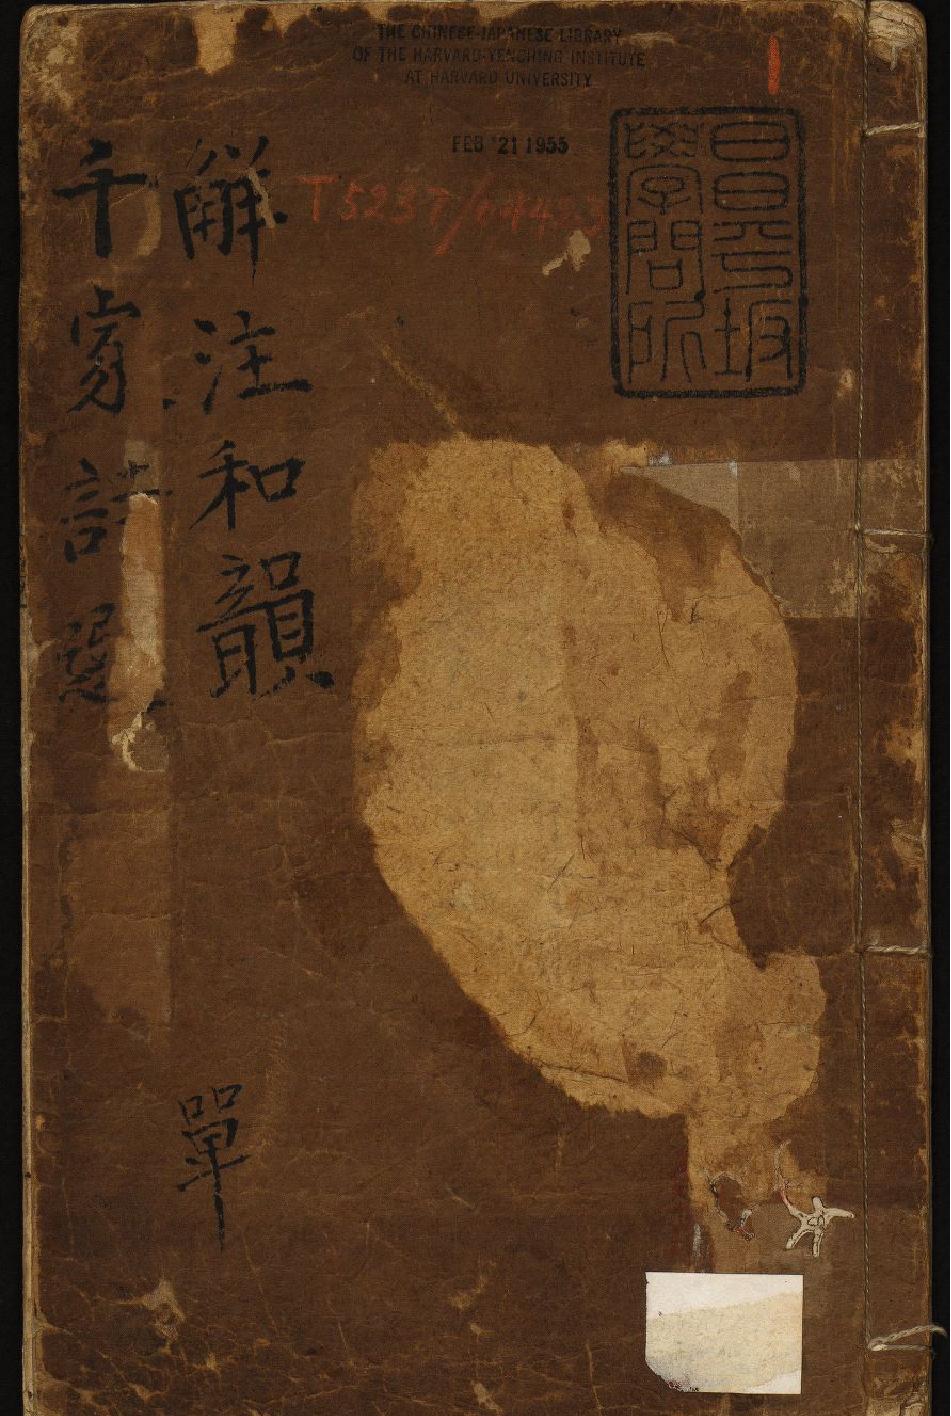 THE CHINESE-JAPANESE LIBRARY
OF THE HARVARD-YENCHING INSTITUTE
AT HARVARD UNIVERSITY
FEB 21 1955
昌平坂
學問所
T5237/
觧注和韻
千家詩選
單